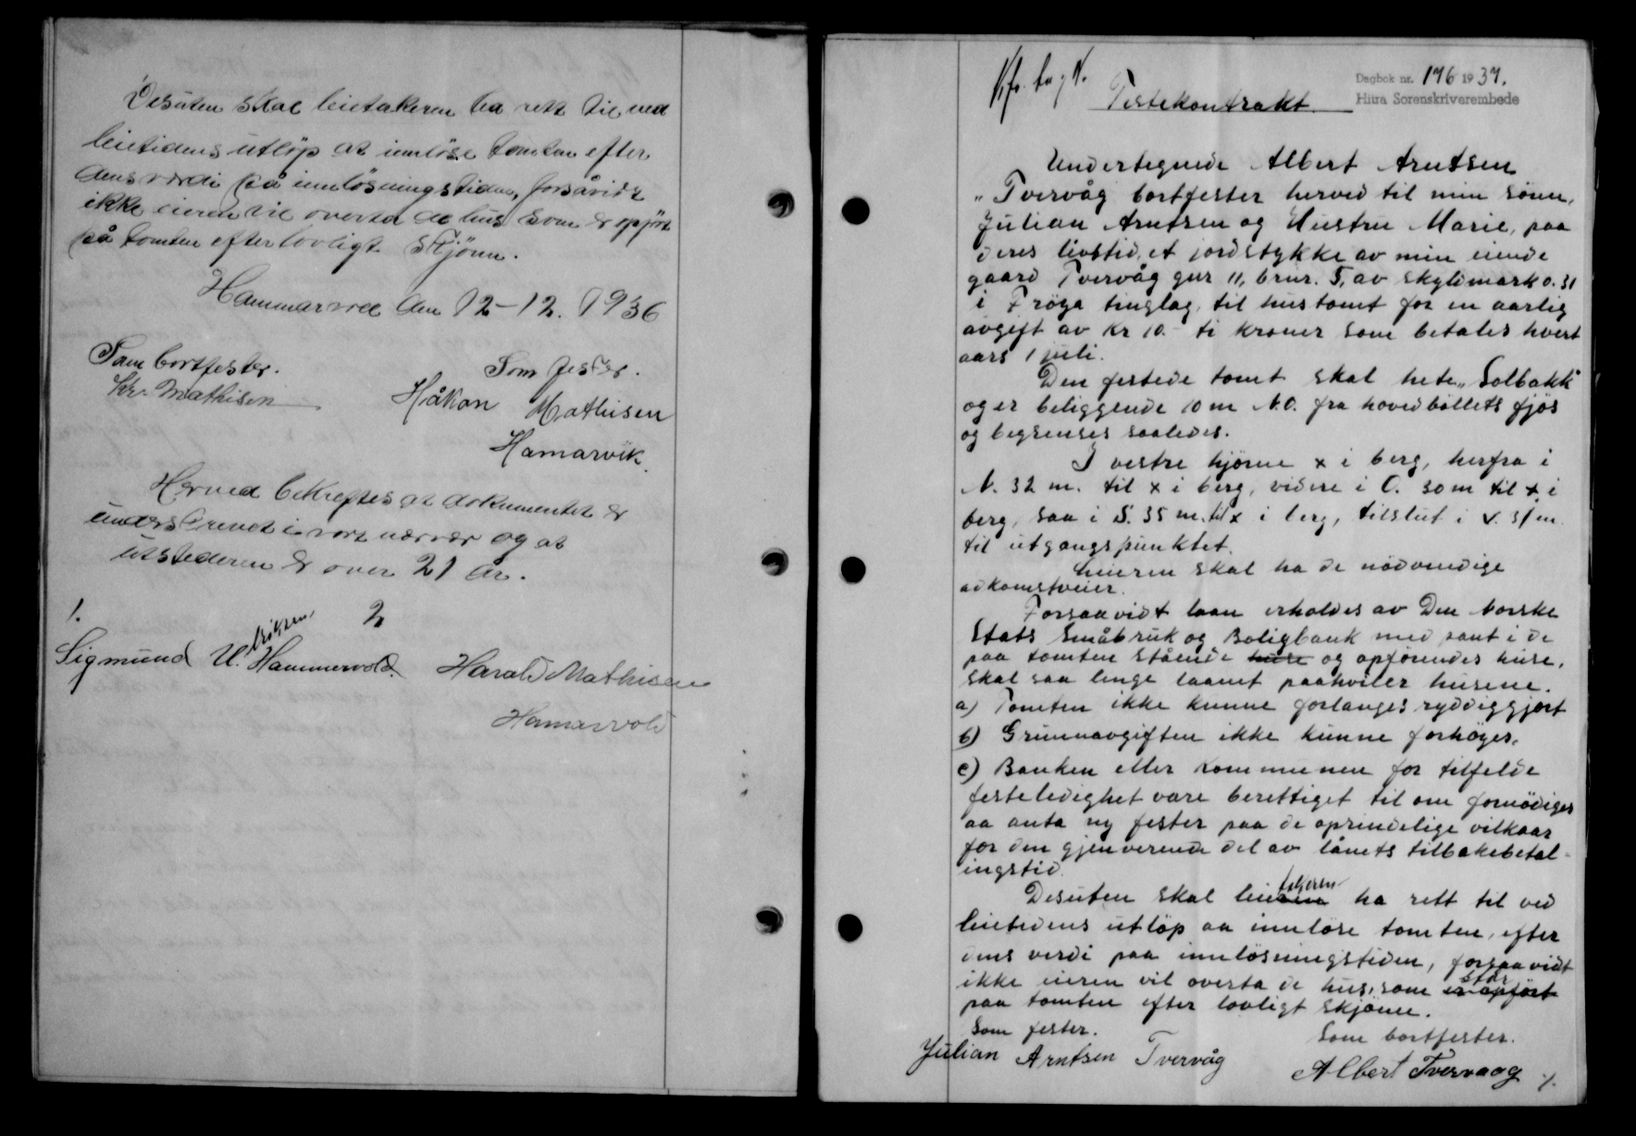 Desuten skal leietakeren ha rett til ved
leietidens utløp at innløse tomten efter
dens verdi på innløsningstiden, forsåvidt
ikke eieren vil overta de hus som er opført
på tomten efter lovligt skjønn.
Hammarvoll den 12-12. 1936
Som bortfester.
Som fester.
Kr. Mathisen
Håkon Mathisen
Hamarvik.
Herved bekreftes at dokumentet er
underskrevet i vort nærvær og at
utstederen er over 21 år.
1.
2
Sigmund U. Hammervold.
Harald Mathisen
Hamarvold
Dagbok nr. 176 1937.
Hitra Sorenskriverembede
Festekontrakt.
Undertegnede Albert Arntsen
" Tvervåg bortfester herved til min sönn,
Julian Arntsen og Hustru Marie, paa
deres livstid, et jordstykke av min eiende
gaard Tvervåg gnr 11, brnr. 5, av skyldmark 0.31
i Fröya tinglag, til hustomt for en aarlig
avgift av kr 10.- ti kroner som betales hvert
aars 1 juli.
Den festede tomt skal hete „Solbakk"
og er beliggende 10 m N.O. fra hovedböllets fjös
og begrenses saaledes.
I vestre hjörne x i berg, herfra i
N. 32 m. til x i berg, videre i O. 30 m til x i
berg, saa i S. 35 m. til x i berg, tilslut i V. 31 m.
til utgangspunktet.
Leieren skal ha de nödvendige
adkomstveier.
Forsaavidt laan erholdes av Den Norske
Stats Småbruk og Boligbank med pant i de
paa tomten stående huse og opförendes huse,
skal saa lenge laanet paahviler husene.
a) Tomten ikke kunne forlanges ryddiggjort
b) Grunnavgiften ikke kunne forhöges.
c) Banken eller kommunen for tilfelde
festeledighet være berettiget til om fornödiges
aa anta ny fester paa de oprindelige vilkaar
for den gjenværende del av lånets tilbakebetal-
ingstid.
takeren
Desuten skal leieren ha rett til ved
leietidens utlöp aa innlöse tomten, efter
dens verdi paa innlösningstiden, forsaavidt
står
ikke eieren vil overta de hus, som er opfört
paa tomten efter lovligt skjönn.
Som fester.
Som bortfester.
Julian Arntsen Tvervåg
Albert Tvervaag